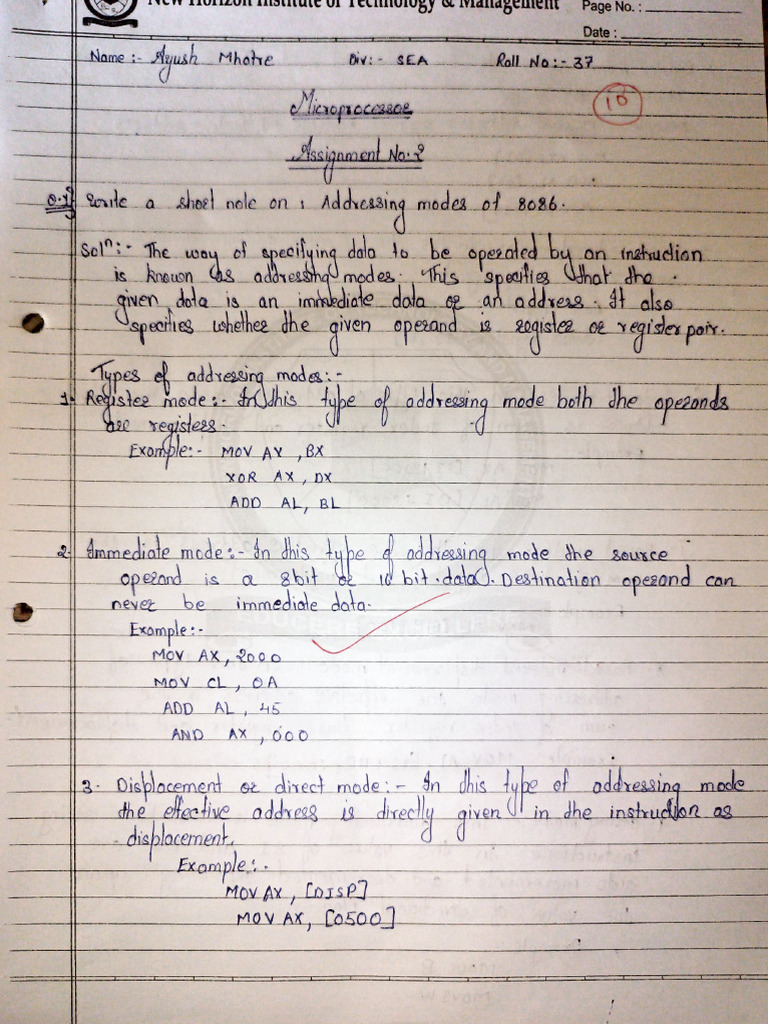 New Horizon Institute of Technology & Management
Page No. :
Date :
Name :- Ayush Mhatre Div:- SEA Roll No :- 37
Microprocessor
10
Assignment No. 2
Q.1} Write a short note on : Addressing modes of 8086.
Solⁿ:- The way of specifying data to be operated by an instruction
is known as addressing modes. This specifies that the
given data is an immediate data or an address. It also
specifies whether the given operand is register or register pair.
Types of addressing modes:-
1. Register mode:- In this type of addressing mode both the operands
are registers.
Example:- MOV AX, BX
XOR AX, DX
ADD AL, BL
2. Immediate mode:- In this type of addressing mode the source
operand is a 8bit or 16 bit data. Destination operand can
never be immediate data.
Example:-
MOV AX, 2000
MOV CL, 0A
ADD AL, 45
AND AX, 000
3. Displacement or direct mode:- In this type of addressing mode
the effective address is directly given in the instruction as
displacement.
Example:-
MOV AX, [DISP]
MOV AX, [0500]